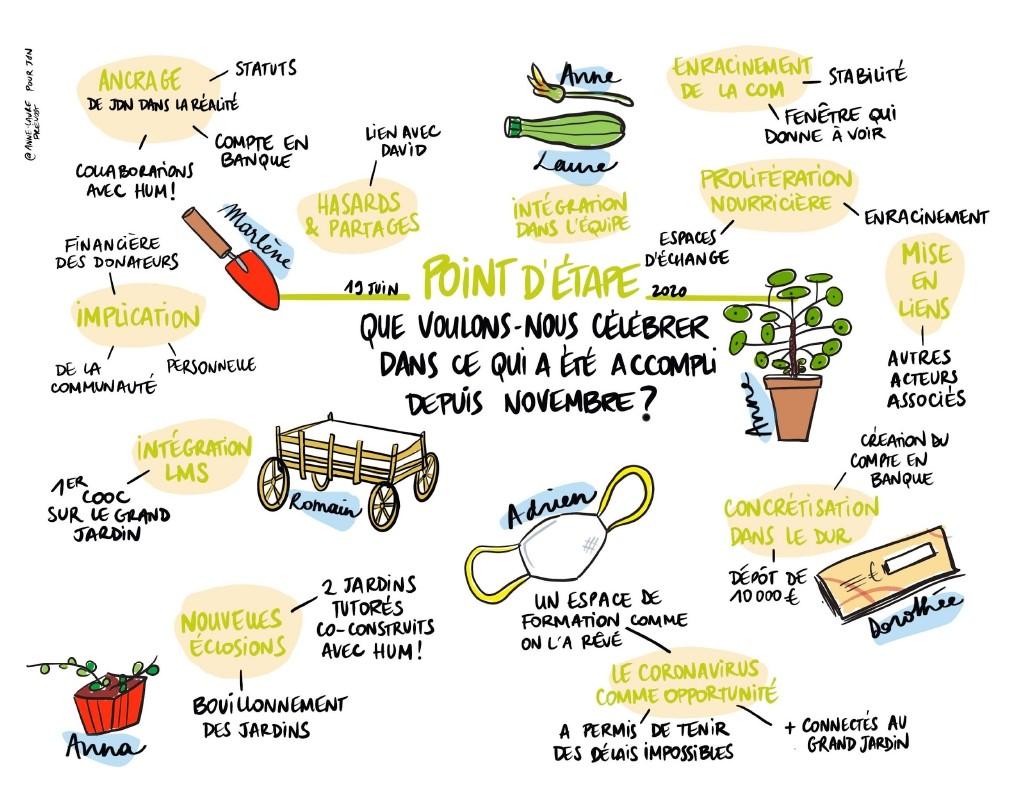 @ANNE-LAURE POUR JDN
PRÉVOST
ANCRAGE
DE JDN DANS LA RÉALITÉ
STATUTS
COMPTE EN
BANQUE
COLLABORATIONS
AVEC HUM!
LIEN AVEC
DAVID
HASARDS
& PARTAGES
Marlène
FINANCIÈRE
DES DONATEURS
IMPLICATION
DE LA
COMMUNAUTÉ
PERSONNELLE
Anne
Laure
INTÉGRATION
DANS L'ÉQUIPE
ENRACINEMENT
DE LA COM
STABILITÉ
FENÊTRE QUI
DONNE À VOIR
PROLIFÉRATION
NOURRICIÈRE
ENRACINEMENT
ESPACES
D'ÉCHANGE
MISE
EN
LIENS
AUTRES
ACTEURS
ASSOCIÉS
19 JUIN
POINT D'ÉTAPE
2020
QUE VOULONS-NOUS CÉLÉBRER
DANS CE QUI A ÉTÉ ACCOMPLI
DEPUIS NOVEMBRE ?
Anne
INTÉGRATION
LMS
1ER
COOC
SUR LE GRAND
JARDIN
Romain
Adrien
CRÉATION DU
COMPTE EN
BANQUE
CONCRÉTISATION
DANS LE DUR
DÉPÔT DE
10 000 €
€
Dorothée
NOUVELLES
ÉCLOSIONS
2 JARDINS
TUTORÉS
CO-CONSTRUITS
AVEC HUM!
BOUILLONNEMENT
DES JARDINS
Anna
UN ESPACE DE
FORMATION COMME
ON L'A RÊVÉ
LE CORONAVIRUS
COMME OPPORTUNITÉ
A PERMIS DE TENIR
DES DÉLAIS IMPOSSIBLES
+ CONNECTÉS AU
GRAND JARDIN